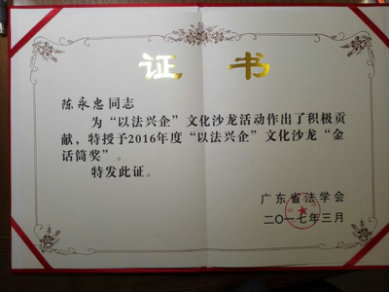 证书
陈永忠同志
为“以法兴企”文化沙龙活动作出了积极贡
献，特授予2016年度“以法兴企”文化沙龙“金
话筒奖”。
特发此证。
广东省法学会
二〇一七年三月